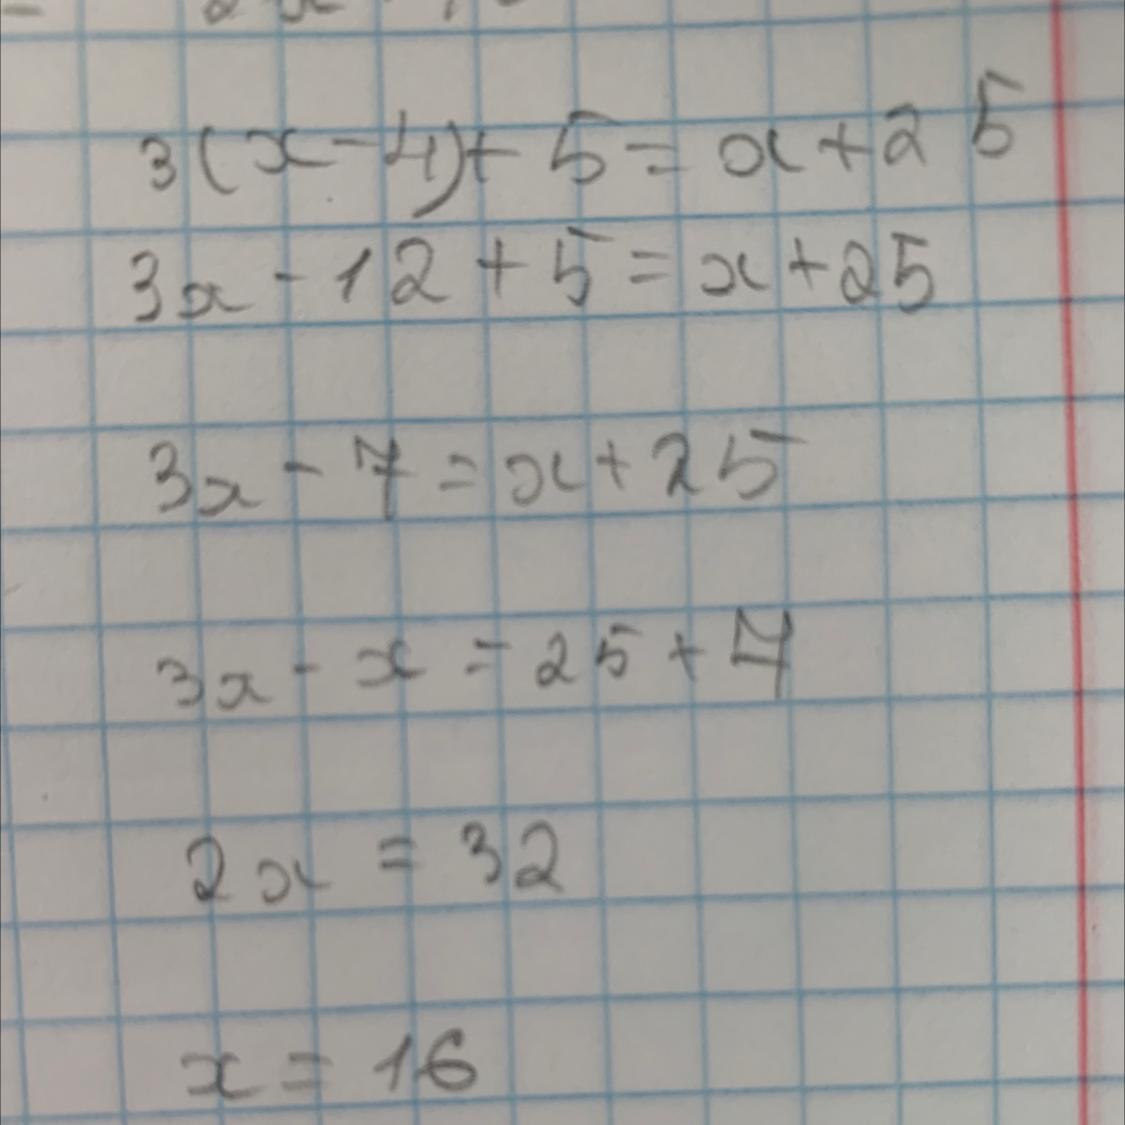 3(x-4)+5=x+25
3x-12+5=x+25
3x-7=x+25
3x-x=25+7
2x=32
x=16